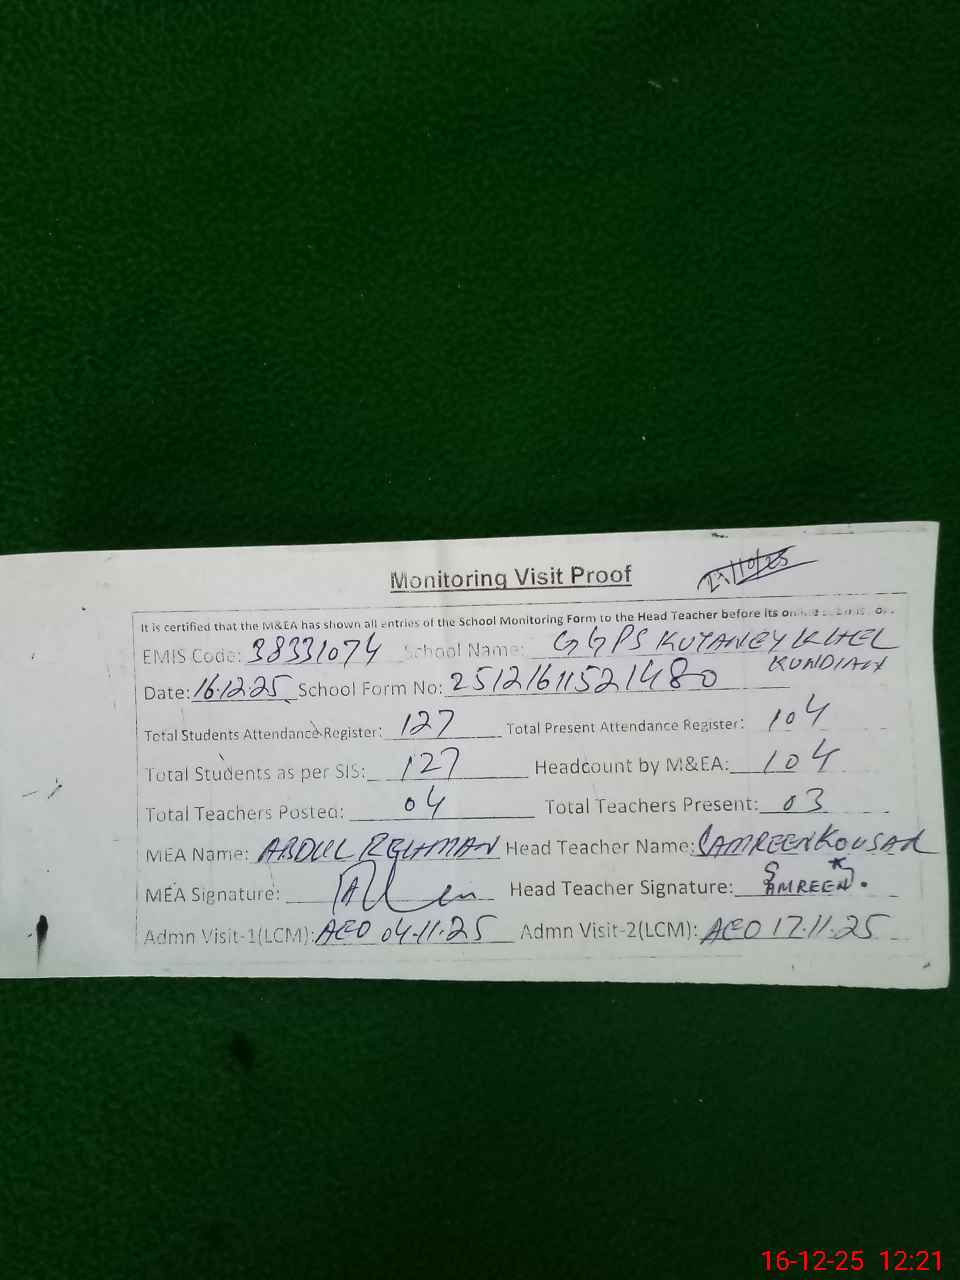 Monitoring Visit Proof
It is certified that the M&EA has shown all entries of the School Monitoring Form to the Head Teacher before its
EMIS Code: 38331074 School Name: GGPS KUTANEY KHEL
KUNDIAN
Date: 16.12.25 School Form No: 25121611521480
Total Students Attendance Register: 127 Total Present Attendance Register: 104
Total Students as per SIS: 127 Headcount by M&EA: 104
Total Teachers Posted: 04 Total Teachers Present: 03
MEA Name: ABDUL REHMAN Head Teacher Name: SAMREEN KOUSAR
MEA Signature: Head Teacher Signature: SAMREEN.
Admn Visit-1(LCM): AEO 04.11.25 Admn Visit-2(LCM): AEO 17.11.25
16-12-25 12:21